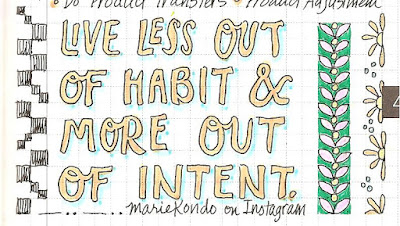 Do Product Transfers Product Adjustment
LIVE LESS OUT
OF HABIT &
MORE OUT
OF INTENT.
MarieKondo on Instagram
4